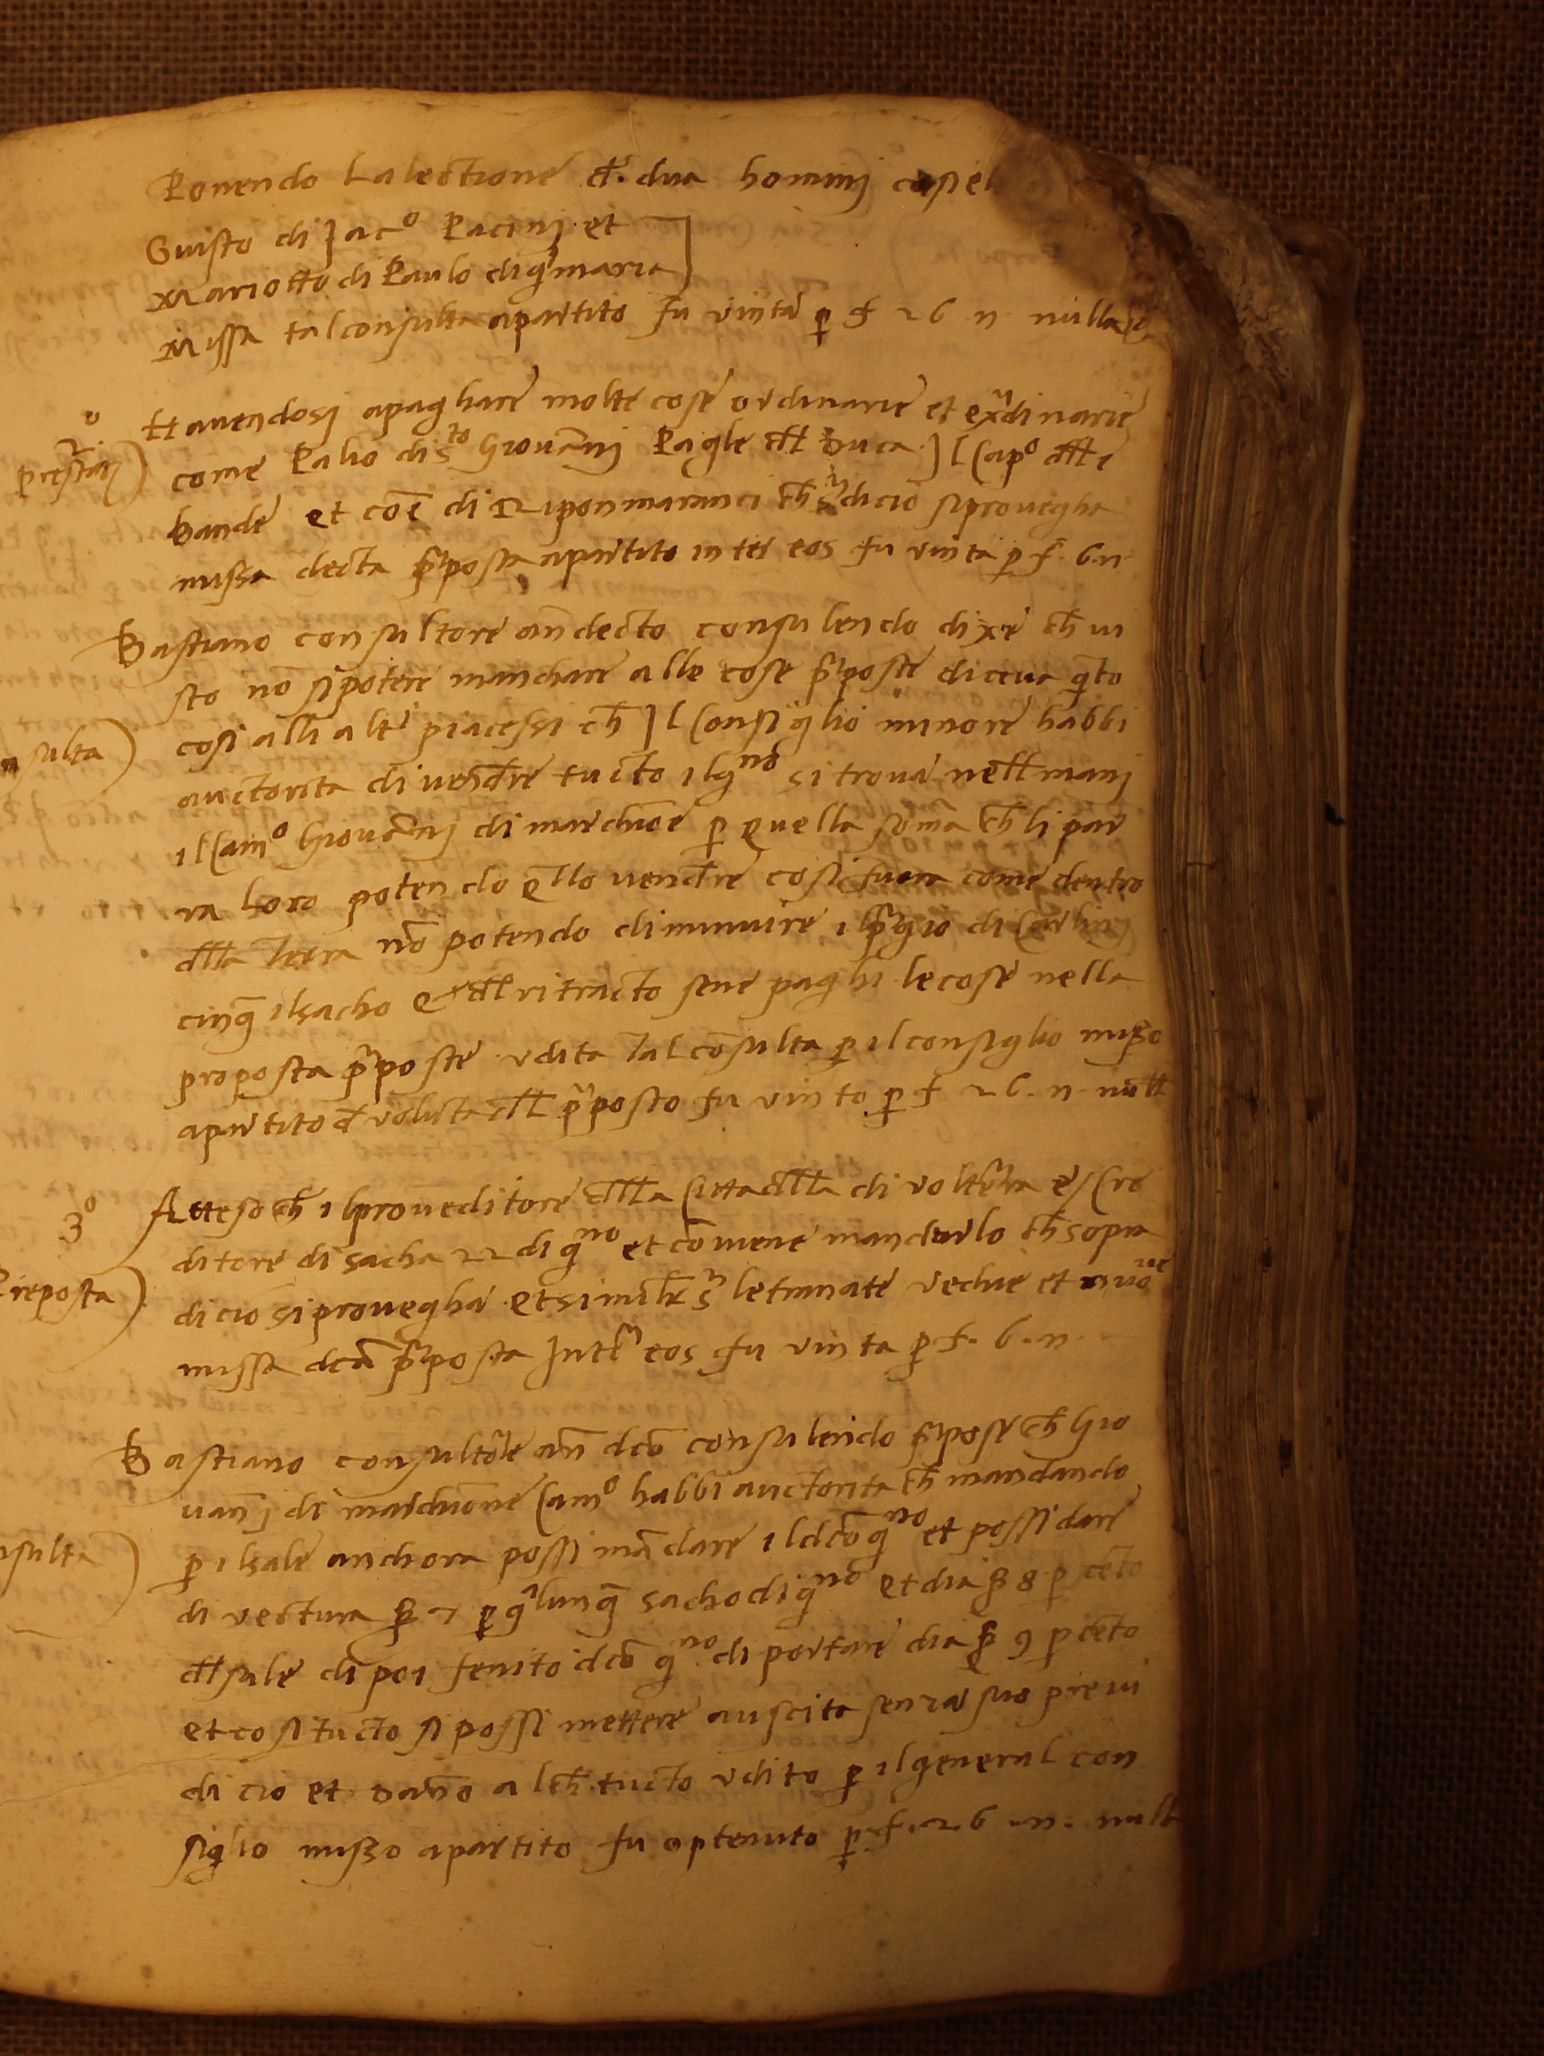 Ponendo Lalectione d. dua homini cosi el
Guisto di Jac° Pacinj et
Mariotto di Paulo di qmaria
Missa tal consulta apartito fu vinta p f 26 n nulla
°
Havendosi apaghare molte cose ordinarie et exrdinarie
come Palio di sto Giovannj Pagle dll Duca Il Cap° dlle
bande et coe di Riponmaranci ch sr dicio siprovegha
missa decta prposta apartito inter eos fu vinta p f. 6. n
Bastiano consultore an decto consulendo dixe ch vi
sto no si potere manchare alle cose prposte diceva qto
nsulta)
cosi alli altri piacessi ch Il Consiglio minore habbi
auctorita di vendre tucto il gno si trova nell manj
il Cam° Giovannj di marchione p quella soma ch li par
ra loro potendo qllo vendre cosi fuora come dentro
dlla terra no potendo diminuire il prgio di Carlinj
cinq ilsacho e dl ritracto sene paghi le cose nella
proposta prposte udita tal consulta p il consiglio misso
apartito d volunta dll prposto fu vinto p f 26. n. null
3°
Atteso ch il proveditore dlla Cittadlla di volterra e Cre
ditore di sacha 22 di gno et convene mandarlo ch sopra
Preposta)
dicio si provegha et similr sr letrmate vechie et nuove
missa dca prposta Intr eos fu vinta p f. 6. n.
Bastiano consultore an dco consulendo prpose ch Gio
vanj di marchionne Cam° habbi auctorita ch mandando
nsulta)
p ilsale anchora possi mandare il dco gno et possi dare
di vectura 7 p qlunq sacho di gno et dia 8 p cento
dll sale di poi fenito dco gno di portare dia 9 p cento
et cosi tucto si possi mettere a uscita senza suo previ
dicio et danno al ch tucto udito p il general con
siglio misso apartito fu optenuto p f. 26. n. null